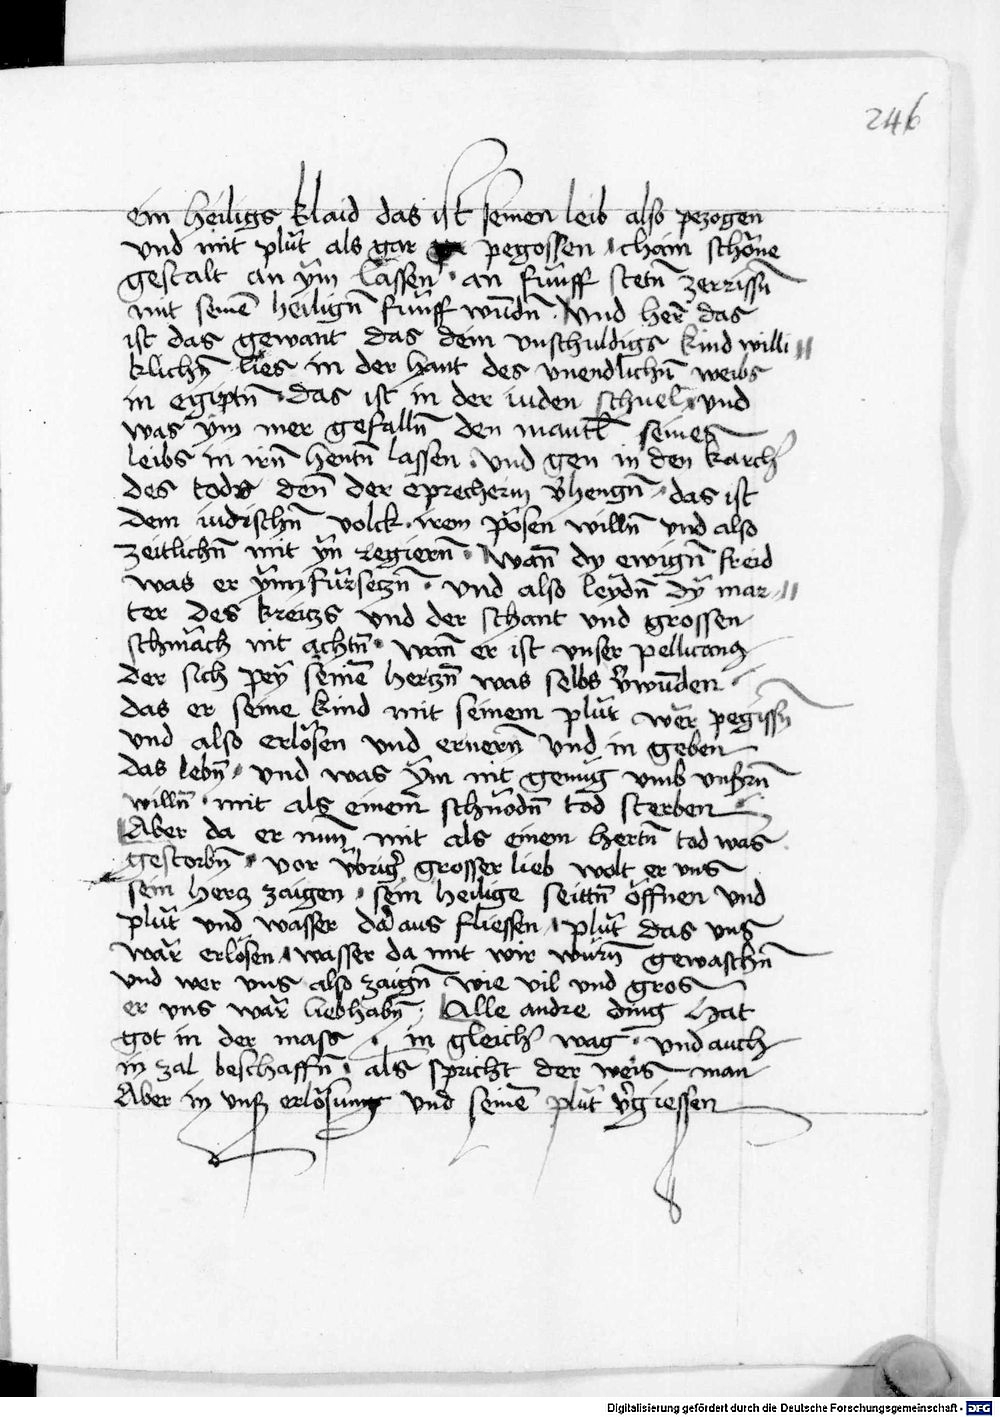 246
ein heiligs klaid das ist seinen leib also pezogen
und mit plůt als gar pegossen chain schöne
gestalt an ym lassen · an fünff stetñ zerrissñ
mit seinē heiligñ fünff wūdñ · Und her das
ist das gewant das dein unschuldigs kind willi
klichñ lies in der hant des unendlichñ weibs
in egiptñ · das ist in der iuden schuel und
was ym mer gefallñ den mantl seines
leibs in irñ hentñ lassen · und gen in den karcher
des tods deñ der eprecherin v̄hengñ · das ist
dem iudischñ volck · irem pösen willñ und also
zeitlichñ mit yn regierñ · Wañ dy ewigñ freid
was er ym fürseczñ · und also leydñ dy mar
ter des kreitzs und der schant und grossen
schmäch nit achtñ · wañ er ist unser pellicanus
der sich pey seinē hertzñ was selbs v̄wūden
das er seine kind mit seinem plůt wär pegissñ
und also erlösen und ernerñ und in geben
das lebñ · und was ym nit genüg umb unsrñ
willñ · mit als einem schnödñ tod sterben
Aber da er nun mit als einem hertñ tod was
gestorbñ · vor v̈briger grosser lieb wolt er uns
sein hertz zaigen · sein heilige seittñ öffnen und
plůt und wasser daraus fliessen · plůt das uns
wär erlösen · wasser da mit wir würñ gewaschñ
und wer uns also zaigñ wie vil und gros
er uns wär liebhabñ : Alle andre ding hat
got in der mass · in gleicher wag · und auch
in zal beschaffñ · als spricht der weis man
Aber in unser erlösung und seinē plůt v̄giessen
Digitalisierung gefördert durch die Deutsche Forschungsgemeinschaft - DFG